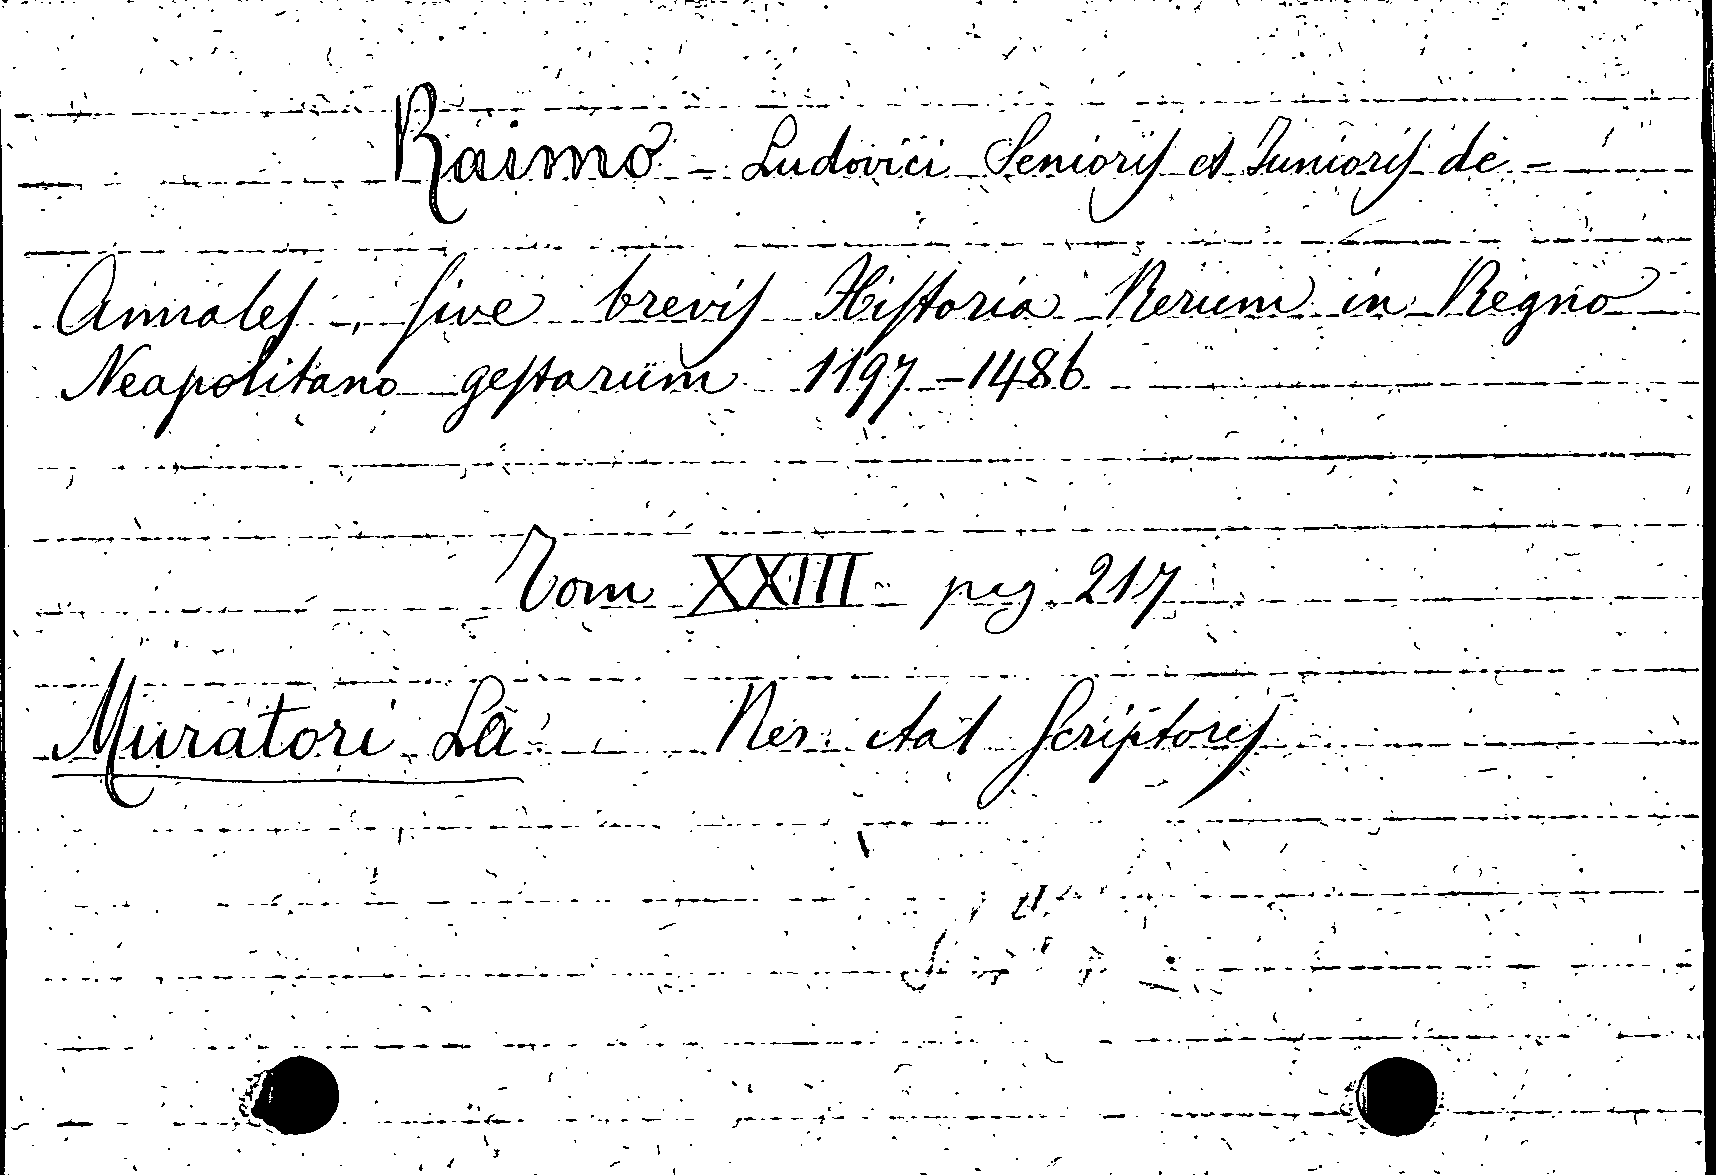 Raimo - Ludovici Senioris et Junioris de -
Annales, sive brevis Historia Rerum in Regno
Neapolitano gestarum 1197-1486
Tom XXIII pag. 217
Muratori La Rer. ital Scriptores